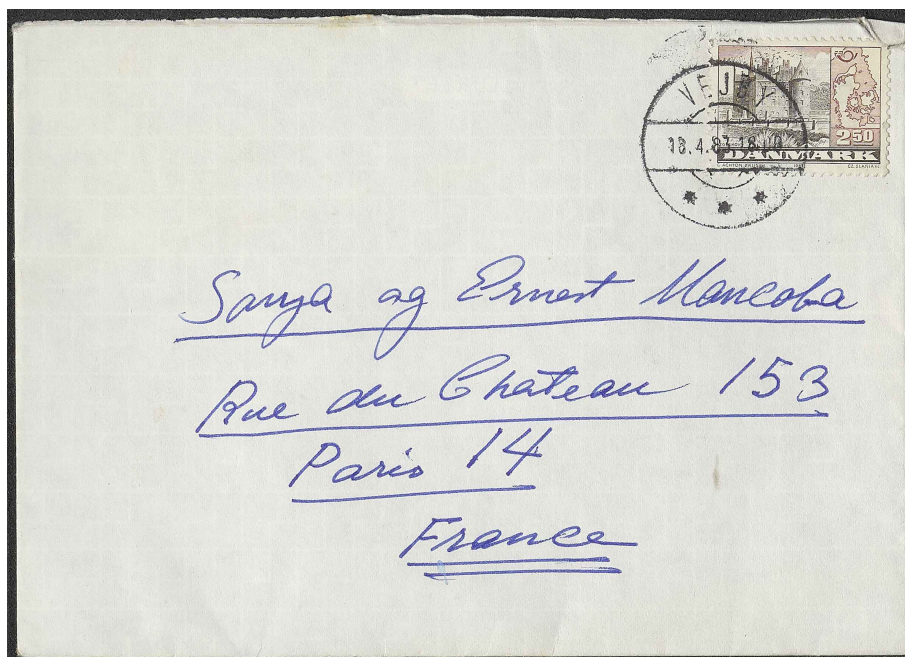 VEJBY
18.4.83.18
2 50
DANMARK
CZ. SLANIA SC.
Sonja og Ernest Mancoba
Rue du Château 153
Paris 14
France